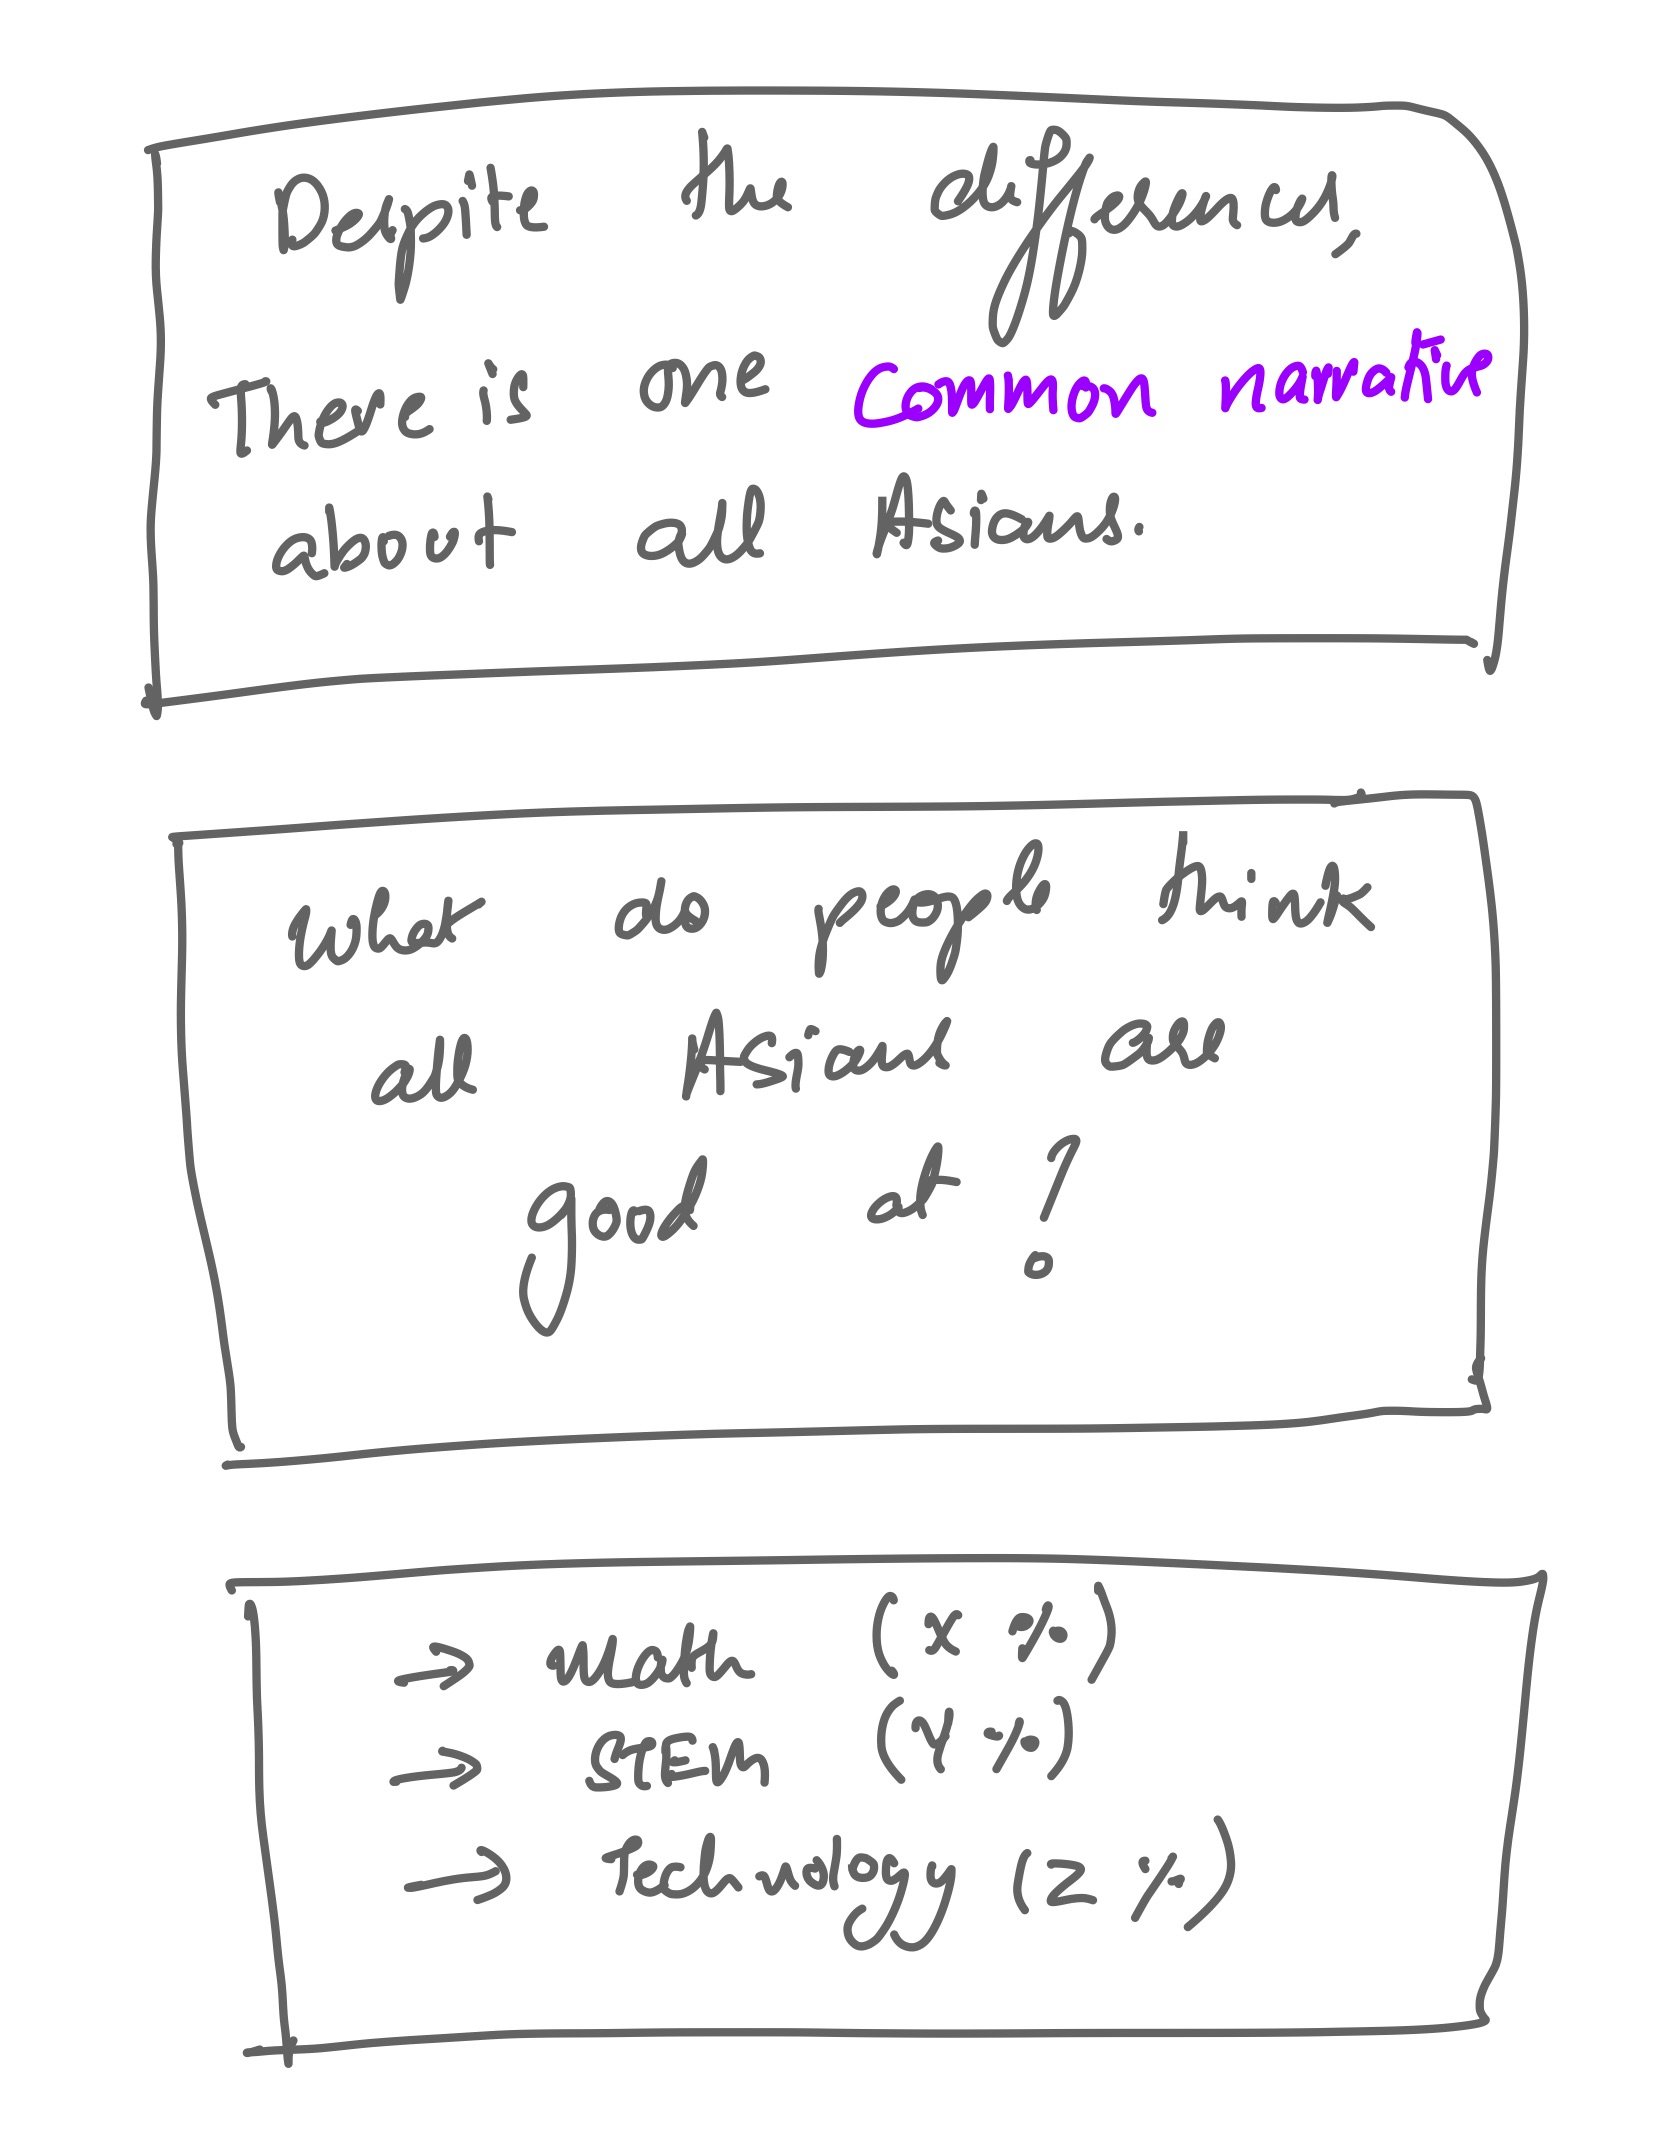 Despite the differences,
There is one Common narrative
about all Asians.
What do people think
all Asians are
good at ?
→ Math (X %)
→ STEM (Y %)
→ Technology (Z %)